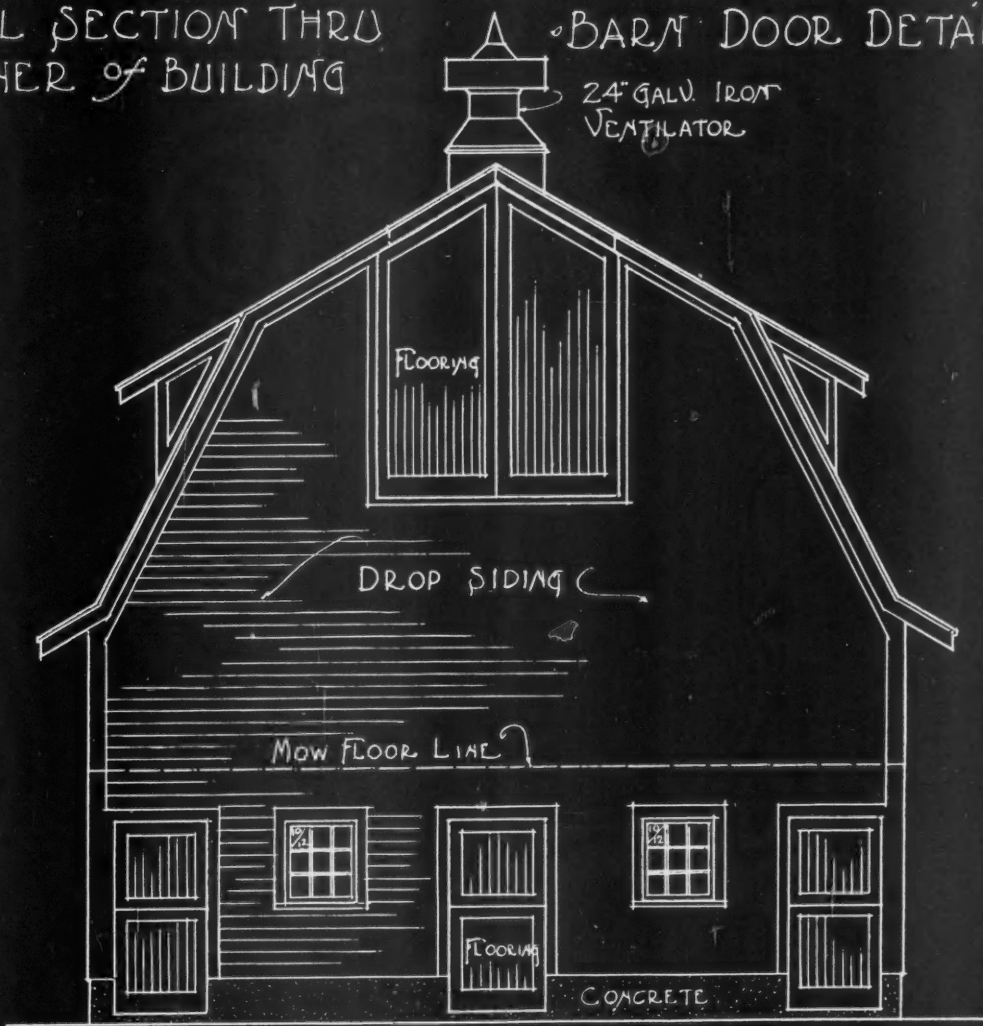 L SECTION THRU
NER of BUILDING
BARN DOOR DETAI
24" GALV. IRON
VENTILATOR
FLOORING
DROP SIDING
MOW FLOOR LINE
10/12
10/12
FLOORING
CONCRETE